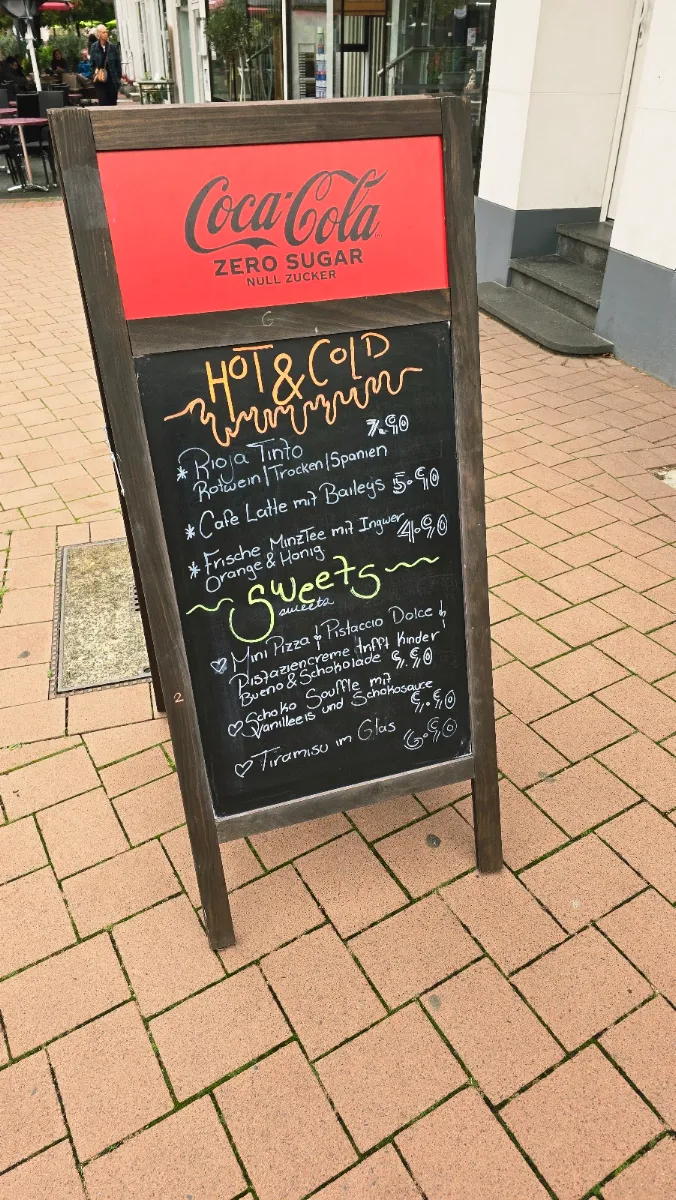 Coca-Cola
ZERO SUGAR
NULL ZUCKER
HOT & COLD
* Rioja Tinto 7.90
Rotwein|Trocken|Spanien
* Cafe Latte mit Baileys 5.90
* Frische MinzTee mit Ingwer 4.90
Orange & Honig
Sweets
sweets
Mini Pizza! Pistaccio Dolce!
Pistaziencreme trifft Kinder
Bueno & Schokolade 9.90
Schoko Souffle mit
Vanilleeis und Schokosauce
Tiramisu im Glas 6.90
2